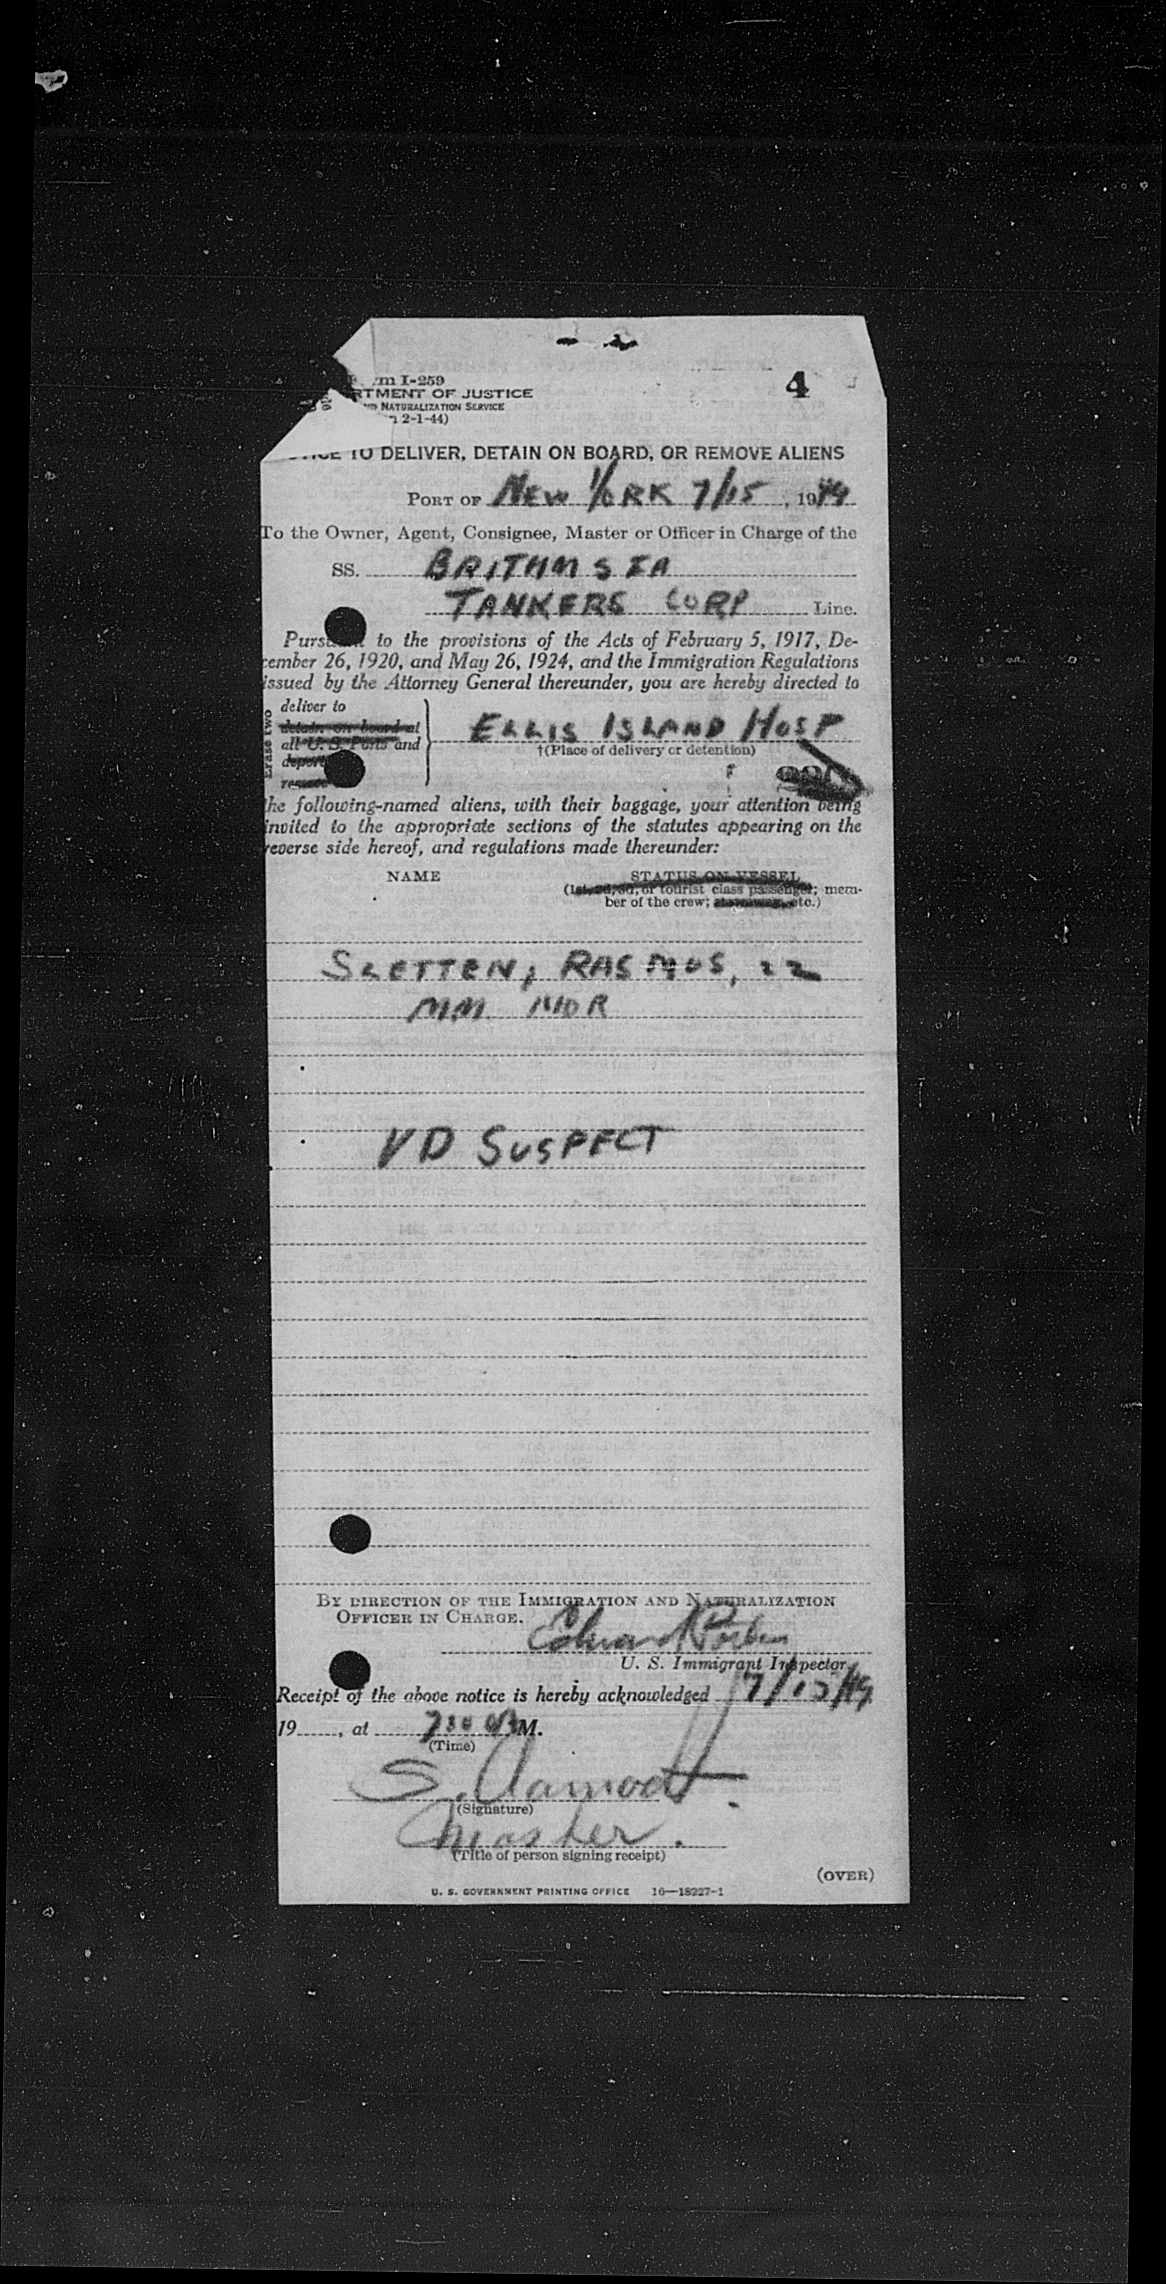 rm I-259
4
RTMENT OF JUSTICE
NATURALIZATION SERVICE
2-1-44)
TO DELIVER, DETAIN ON BOARD, OR REMOVE ALIENS
PORT OF NEW YORK 7/15, 1949
To the Owner, Agent, Consignee, Master or Officer in Charge of the
SS. BRITAMSEA
TANKERS CORP Line.
Pursuant to the provisions of the Acts of February 5, 1917, De-
cember 26, 1920, and May 26, 1924, and the Immigration Regulations
issued by the Attorney General thereunder, you are hereby directed to
Erase two
deliver to
detain on board at
all U. S. Ports and
deport
ELLIS ISLAND HOSP
†(Place of delivery or detention)
the following-named aliens, with their baggage, your attention being
invited to the appropriate sections of the statutes appearing on the
reverse side hereof, and regulations made thereunder:
NAME
STATUS ON VESSEL
(1st, 2d, 3d, or tourist class passenger; mem-
ber of the crew; stowaway, etc.)
SLETTEN, RASMUS, 22
MM NOR
VD SUSPECT
BY DIRECTION OF THE IMMIGRATION AND NATURALIZATION
OFFICER IN CHARGE.
Edward
U. S. Immigrant Inspector
Receipt of the above notice is hereby acknowledged 7/15/49
19, at 730 M.
(Time)
S. Aamodt.
(Signature)
Master.
(Title of person signing receipt)
(OVER)
U. S. GOVERNMENT PRINTING OFFICE 16—18227-1